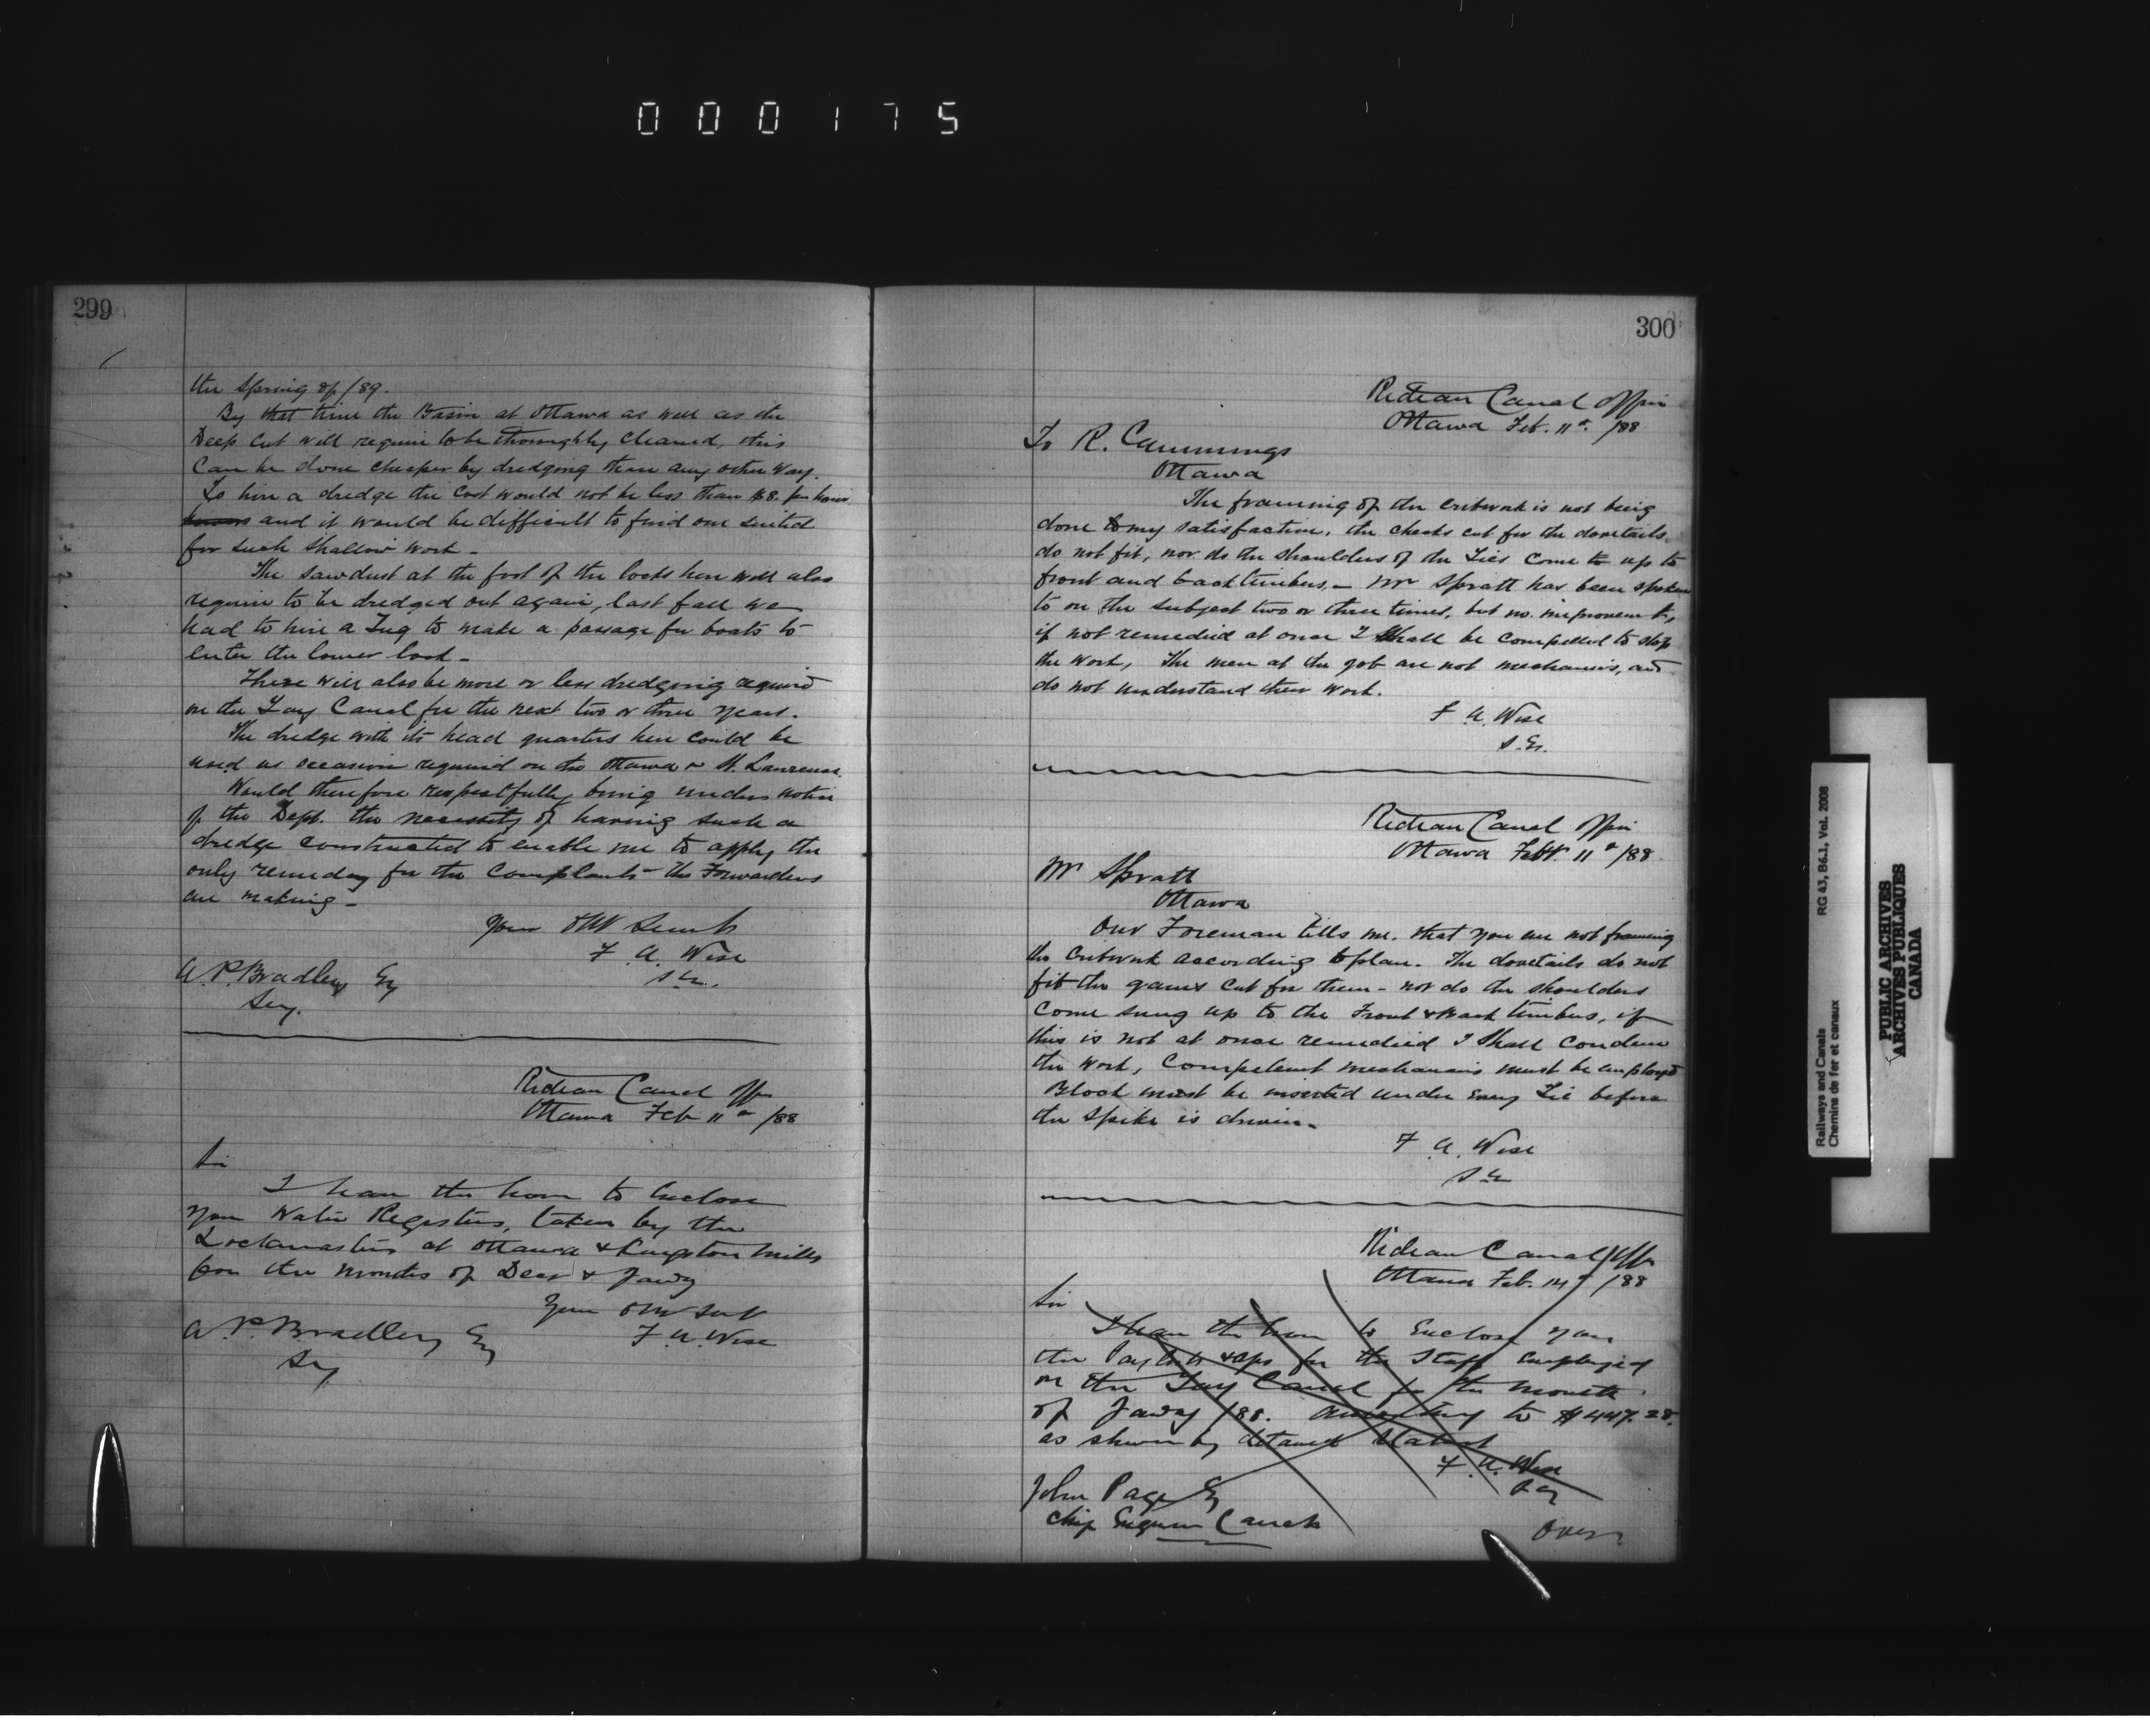 000175
299
the Spring of /89.
By that time the Basin at Ottawa as well as the
Deep Cut will require to be thoroughly cleaned, this
Can be done cheaper by dredging than any other way.
To hire a dredge the Cost would not be less than $8. per hour
and it would be difficult to find one suited
for such shallow work -
The sawdust at the foot of the locks here will also
require to be dredged out again, last fall we
had to hire a Tug to make a passage for boats to
enter the lower lock -
There will also be more or less dredging required
on the Tay Canal for the next two or three years.
The dredge with its head quarters here could be
used as occasion required on the Ottawa or St. Lawrence.
Would therefore respectfully bring under notice
of the Dept. the necessity of having such a
dredge constructed to enable me to apply the
only remedy for the Complaints the Forwarders
are making -
Your Obt Servt
F. A. Wise
S.E.
A. P. Bradley Esq
Secy.
Rideau Canal Office
Ottawa Feb 11th /88
Sir
I have the honor to Enclose
you Water Registers, taken by the
Lockmasters at Ottawa & Kingston Mills
for the months of Decr & Jany
Your Obt Servt
F. A. Wise
A. P. Bradley Esq
Secy
300
Rideau Canal Office
Ottawa Feb. 11th. /88
To R. Cummings
Ottawa
The framing of the Cribwork is not being
done to my satisfaction, the cheeks cut for the dovetails
do not fit, nor do the shoulders of the Ties come to up to
front and back timbers. - Mr Spratt has been spoken
to on the subject two or three times, but no improvemt,
if not remedied at once I Shall be compelled to stop
the work, The men at the job are not mechanics, and
do not understand their work.
F. A. Wise
S.E.
Rideau Canal Office
Ottawa Feb. 11th /88.
Mr Spratt
Ottawa
Our Foreman tells me. that you are not framing
the Cribwork according to plan. The dovetails do not
fit the gains cut for them - nor do the shoulders
Come snug up to the Front & Back timbers, if
this is not at once remedied I Shall Condemn
the Work, Competent mechanics must be employed
Block must be inserted under every Tie before
the Spike is driven.
F. A. Wise
S.E.
Rideau Canal Office
Ottawa Feb. 14th /88
Sir
I have the honor to Enclose you
the Pay lists & aps for the Staff Employed
on the Tay Canal for the month
of Jany /88. Amounting to $447.28.
as shewn by detailed Statemt
F. A. Wise
John Page Esq
Chief Engineer Canals
Over
RG 43, B6.1, Vol. 2008
Railways and Canals
Chemins de fer et canaux
PUBLIC ARCHIVES
ARCHIVES PUBLIQUES
CANADA